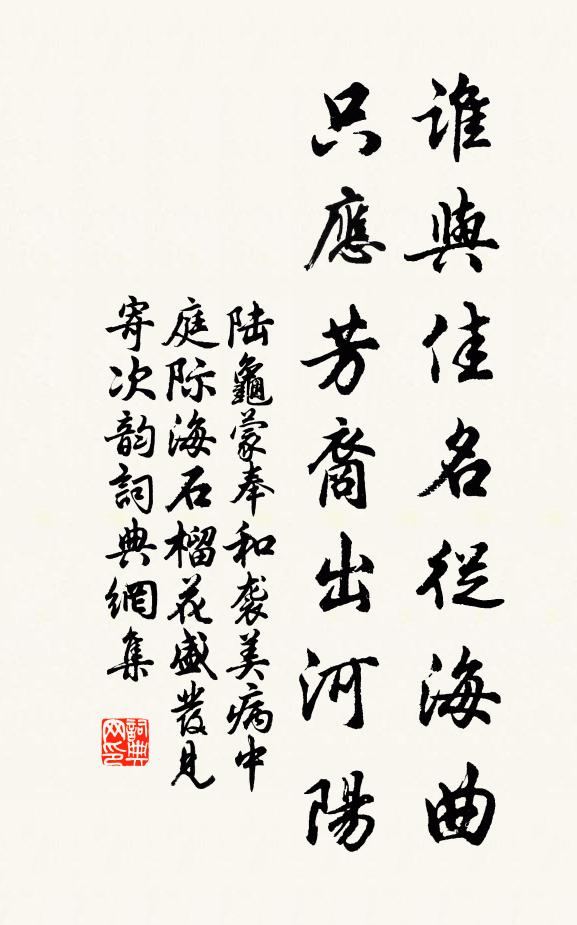 誰與佳名從海曲
只應芳裔出河陽
陆龜蒙奉和袭美病中
庭际海石榴花盛發見
寄次韵詞典網集
詞典
网印